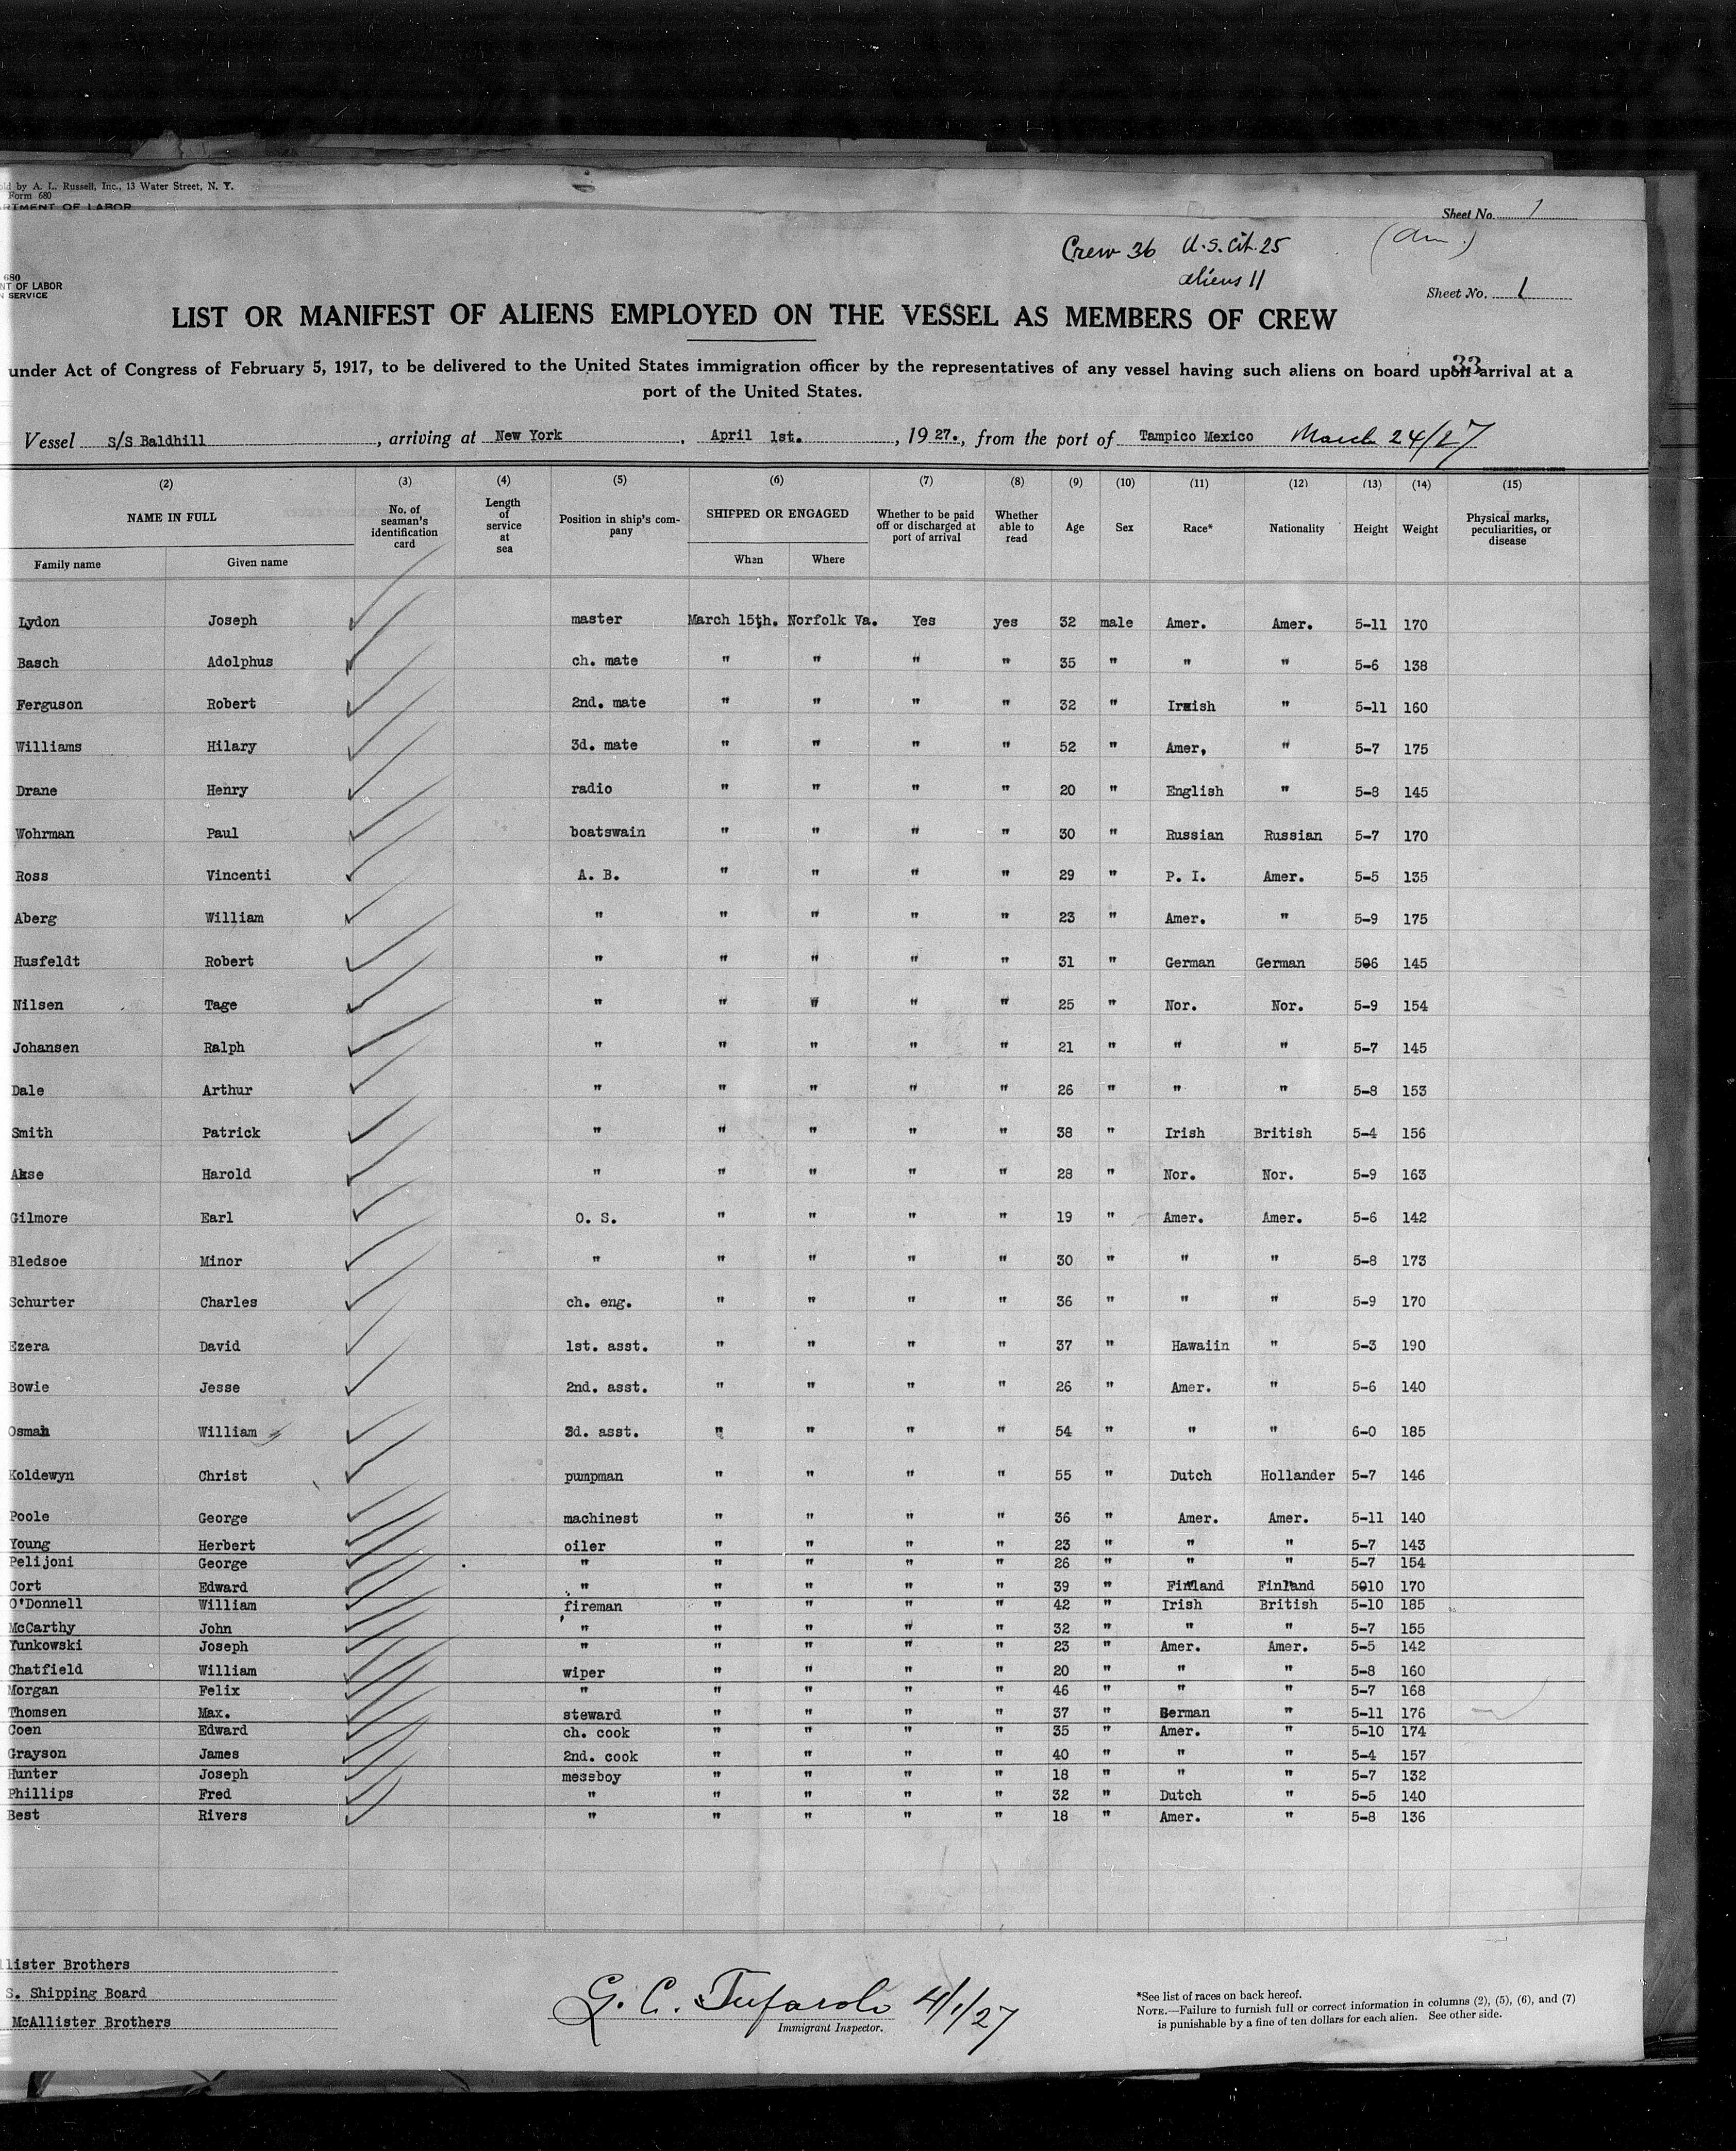 ld by A. L. Russell, Inc., 13 Water Street, N. Y.
Form 680
RTMENT OF LABOR
Sheet No. 1
Crew 36 U.S. Cit. 25
aliens 11
680
NT OF LABOR
N SERVICE
Sheet No. 1
LIST OR MANIFEST OF ALIENS EMPLOYED ON THE VESSEL AS MEMBERS OF CREW
33
under Act of Congress of February 5, 1917, to be delivered to the United States immigration officer by the representatives of any vessel having such aliens on board upon arrival at a
port of the United States.
Vessel S/S Baldhill, arriving at New York, April 1st., 1927., from the port of Tampico Mexico March 24/27
(2) (3) (4) (5) (6) (7) (8) (9) (10) (11) (12) (13) (14) (15)
NAME IN FULL No. of seaman's identification card Length of service at sea Position in ship's company SHIPPED OR ENGAGED Whether to be paid off or discharged at port of arrival Whether able to read Age Sex Race* Nationality Height Weight Physical marks, peculiarities, or disease
Family name Given name When Where
Lydon Joseph master March 15th. Norfolk Va. Yes yes 32 male Amer. Amer. 5-11 170
Basch Adolphus ch. mate " " " " 35 " " " 5-6 138
Ferguson Robert 2nd. mate " " " " 32 " Irish " 5-11 160
Williams Hilary 3d. mate " " " " 52 " Amer, " 5-7 175
Drane Henry radio " " " " 20 " English " 5-8 145
Wohrman Paul boatswain " " " " 30 " Russian Russian 5-7 170
Ross Vincenti A. B. " " " " 29 " P. I. Amer. 5-5 135
Aberg William " " " " " 23 " Amer. " 5-9 175
Husfeldt Robert " " " " " 31 " German German 5-6 145
Nilsen Tage " " " " " 25 " Nor. Nor. 5-9 154
Johansen Ralph " " " " " 21 " " " 5-7 145
Dale Arthur " " " " " 26 " " " 5-8 153
Smith Patrick " " " " " 38 " Irish British 5-4 156
Akse Harold " " " " " 28 " Nor. Nor. 5-9 163
Gilmore Earl O. S. " " " " 19 " Amer. Amer. 5-6 142
Bledsoe Minor " " " " " 30 " " " 5-8 173
Schurter Charles ch. eng. " " " " 36 " " " 5-9 170
Ezera David 1st. asst. " " " " 37 " Hawaiin " 5-3 190
Bowie Jesse 2nd. asst. " " " " 26 " Amer. " 5-6 140
Osman William 3d. asst. " " " " 54 " " " 6-0 185
Koldewyn Christ pumpman " " " " 55 " Dutch Hollander 5-7 146
Poole George machinest " " " " 36 " Amer. Amer. 5-11 140
Young Herbert oiler " " " " 23 " " " 5-7 143
Pelijoni George " " " " " 26 " " " 5-7 154
Cort Edward " " " " " 39 " Finland Finland 5-10 170
O'Donnell William fireman " " " " 42 " Irish British 5-10 185
McCarthy John " " " " " 32 " " " 5-7 155
Yunkowski Joseph " " " " " 23 " Amer. Amer. 5-5 142
Chatfield William wiper " " " " 20 " " " 5-8 160
Morgan Felix " " " " " 46 " " " 5-7 168
Thomsen Max. steward " " " " 37 " German " 5-11 176
Coen Edward ch. cook " " " " 35 " Amer. " 5-10 174
Grayson James 2nd. cook " " " " 40 " " " 5-4 157
Hunter Joseph messboy " " " " 18 " " " 5-7 132
Phillips Fred " " " " " 32 " Dutch " 5-5 140
Best Rivers " " " " " 18 " Amer. " 5-8 136
llister Brothers
S. Shipping Board
McAllister Brothers
G. C. Tufarolo 4/1/27
Immigrant Inspector.
*See list of races on back hereof.
NOTE.—Failure to furnish full or correct information in columns (2), (5), (6), and (7)
is punishable by a fine of ten dollars for each alien. See other side.